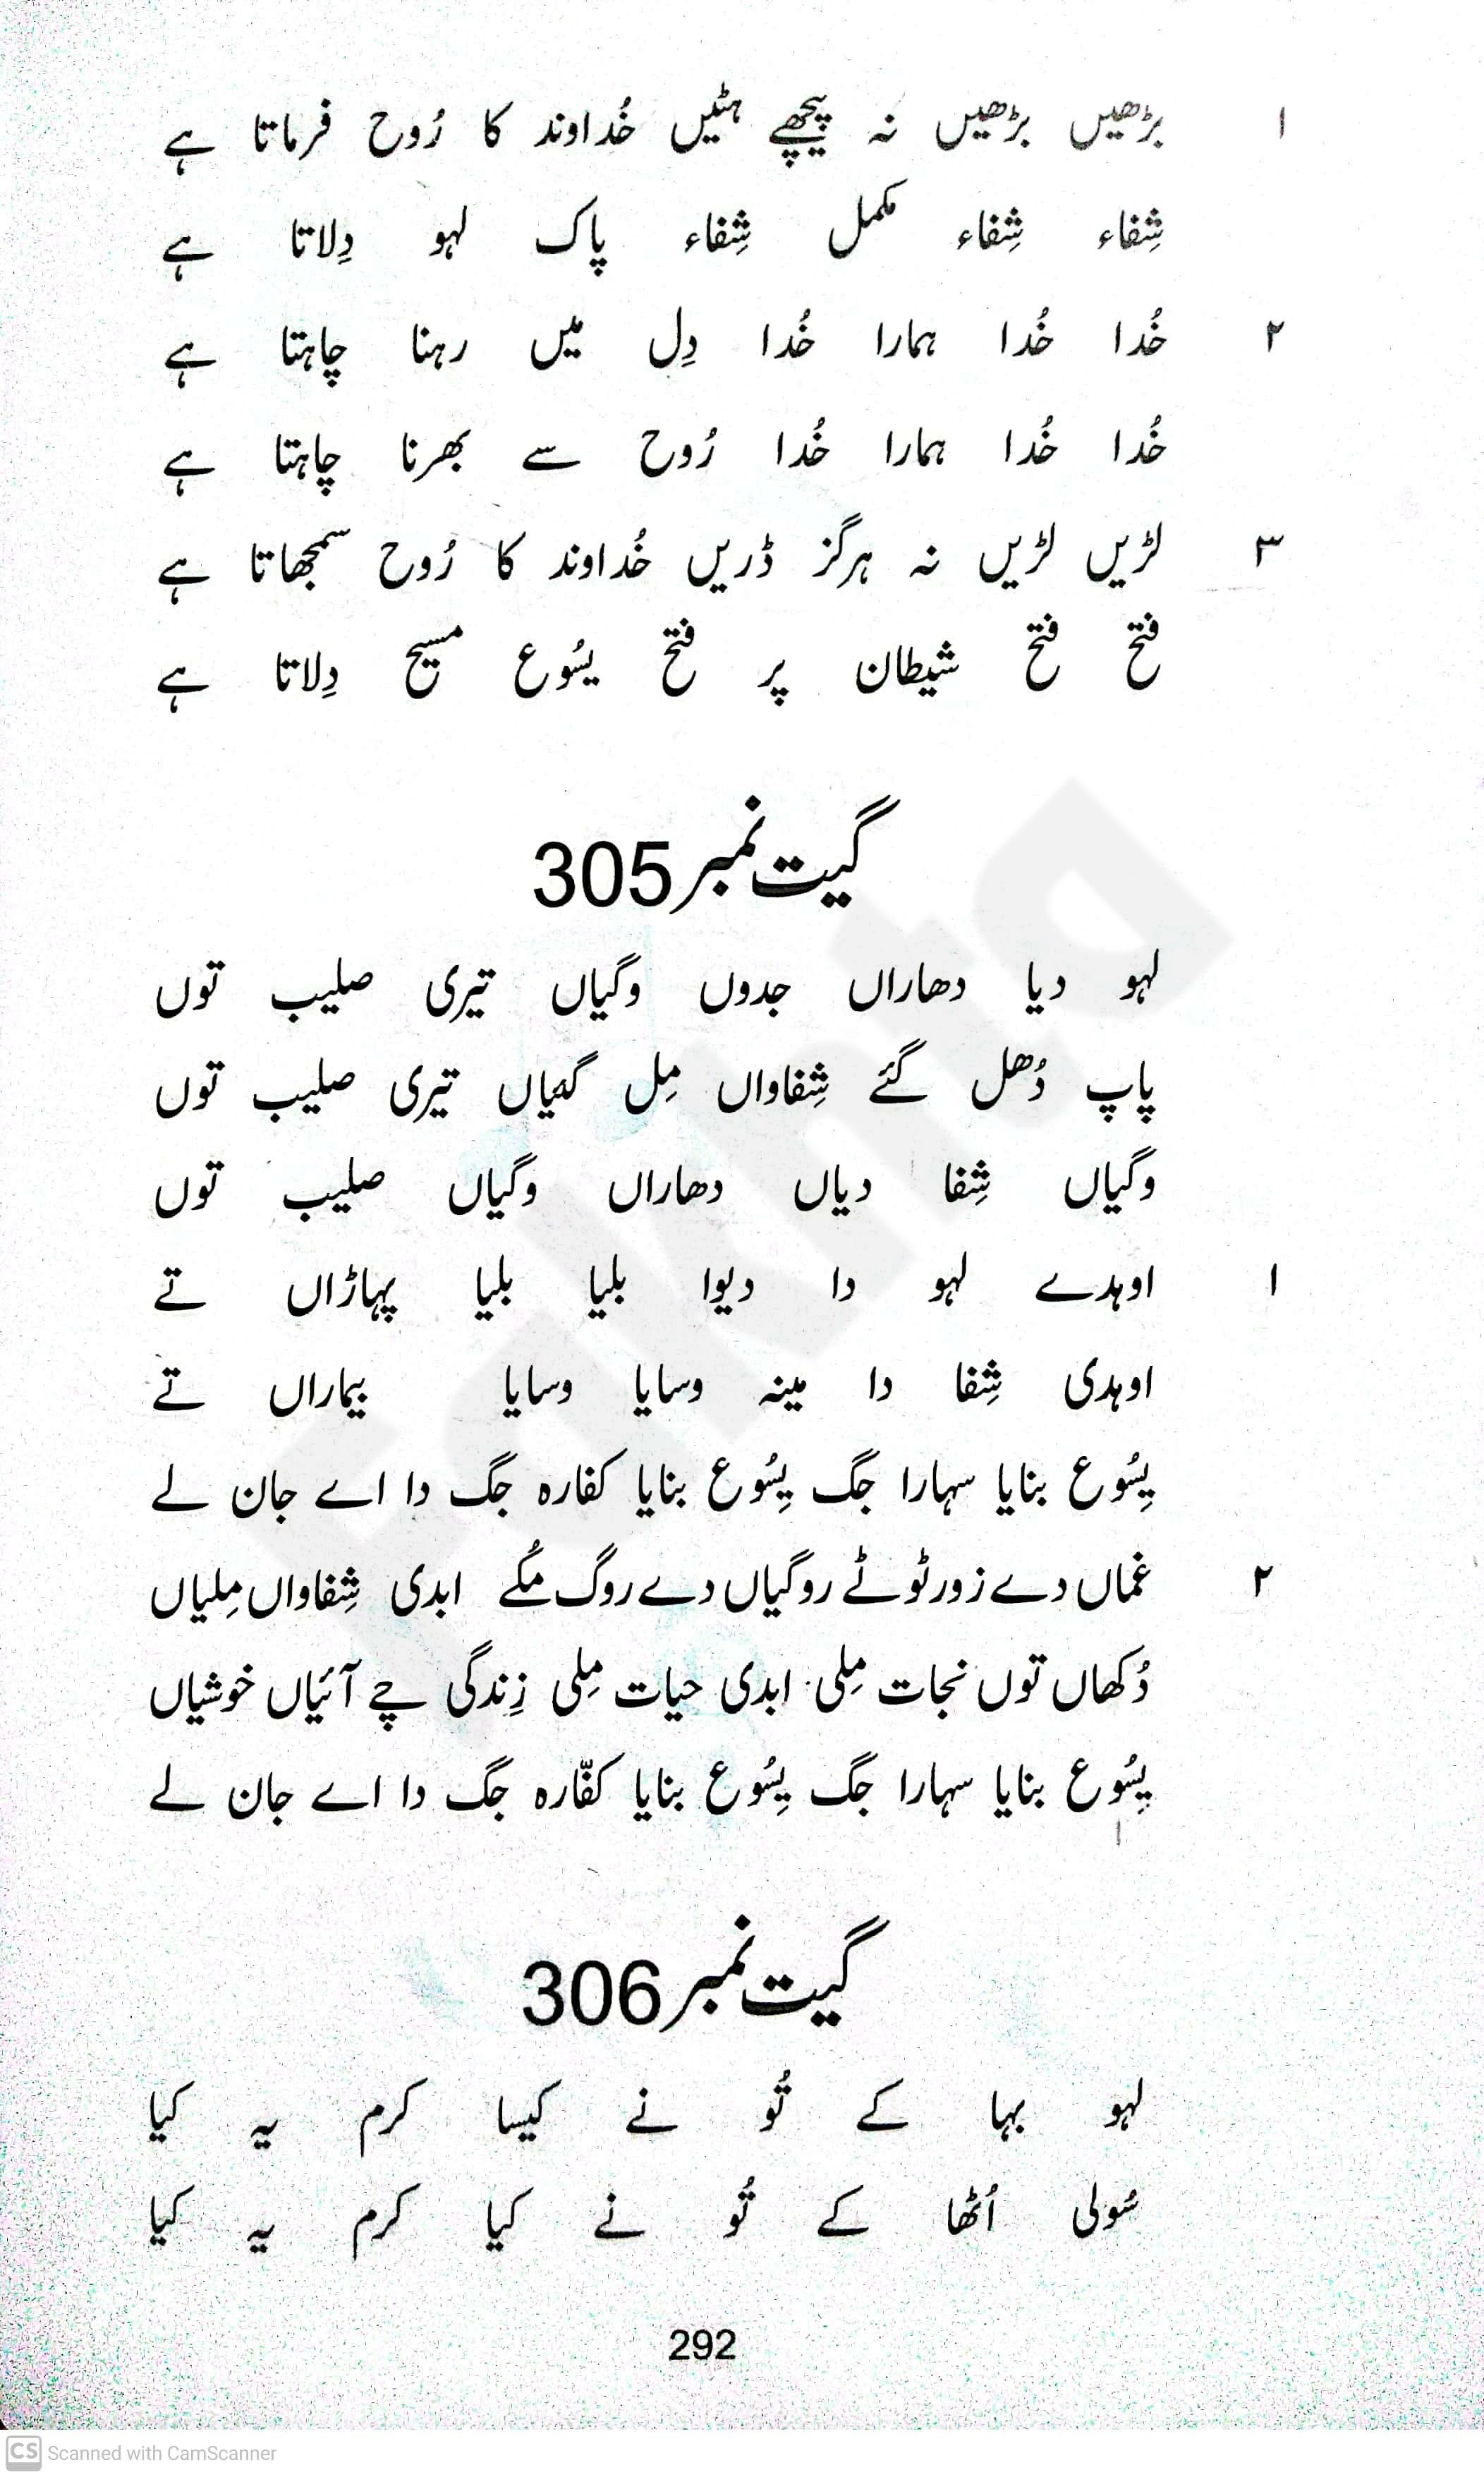 ۱ بڑھیں بڑھیں نہ پیچھے ہٹیں خُداوند کا رُوح فرماتا ہے
شِفاء شِفاء مکمل شِفاء پاک لہو دِلاتا ہے
۲ خُدا خُدا ہمارا خُدا دِل میں رہنا چاہتا ہے
خُدا خُدا ہمارا خُدا رُوح سے بھرنا چاہتا ہے
۳ لڑیں لڑیں نہ ہرگز ڈریں خُداوند کا رُوح سمجھاتا ہے
فتح فتح شیطان پر فتح یسُوع مسیح دِلاتا ہے
گیت نمبر 305
لہو دیا دھاراں جدوں وگیاں تیری صلیب توں
پاپ دُھل گئے شِفاواں مِل گئیاں تیری صلیب توں
وگیاں شِفا دیاں دھاراں وگیاں صلیب توں
۱ اوہدے لہو دا دیوا بلیا بلیا پہاڑاں تے
اوہدی شِفا دا مینہ وسایا وسایا بیماراں تے
یِسُوع بنایا سہارا جگ یِسُوع بنایا کفارہ جگ دا اے جان لے
۲ غماں دے زور ٹوٹے روگیاں دے روگ مُکے ابدی شِفاواں مِلیاں
دُکھاں توں نجات مِلی ابدی حیات مِلی زِندگی چے آئیاں خوشیاں
یِسُوع بنایا سہارا جگ یِسُوع بنایا کفّارہ جگ دا اے جان لے
گیت نمبر 306
لہو بہا کے تُو نے کیسا کرم یہ کیا
سُولی اُٹھا کے تُو نے کیا کرم یہ کیا
292
Fakhta
CS Scanned with CamScanner